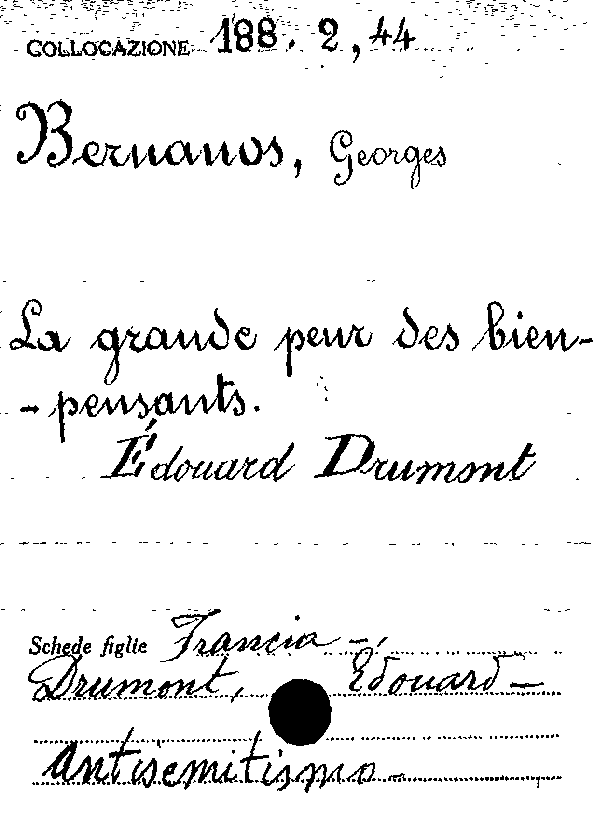 COLLOCAZIONE 188. 2, 44
Bernanos, Georges
La grande peur des bien-
-pensants.
Édouard Drumont
Schede figlie Francia -,
Drumont, Edouard -
Antisemitismo -